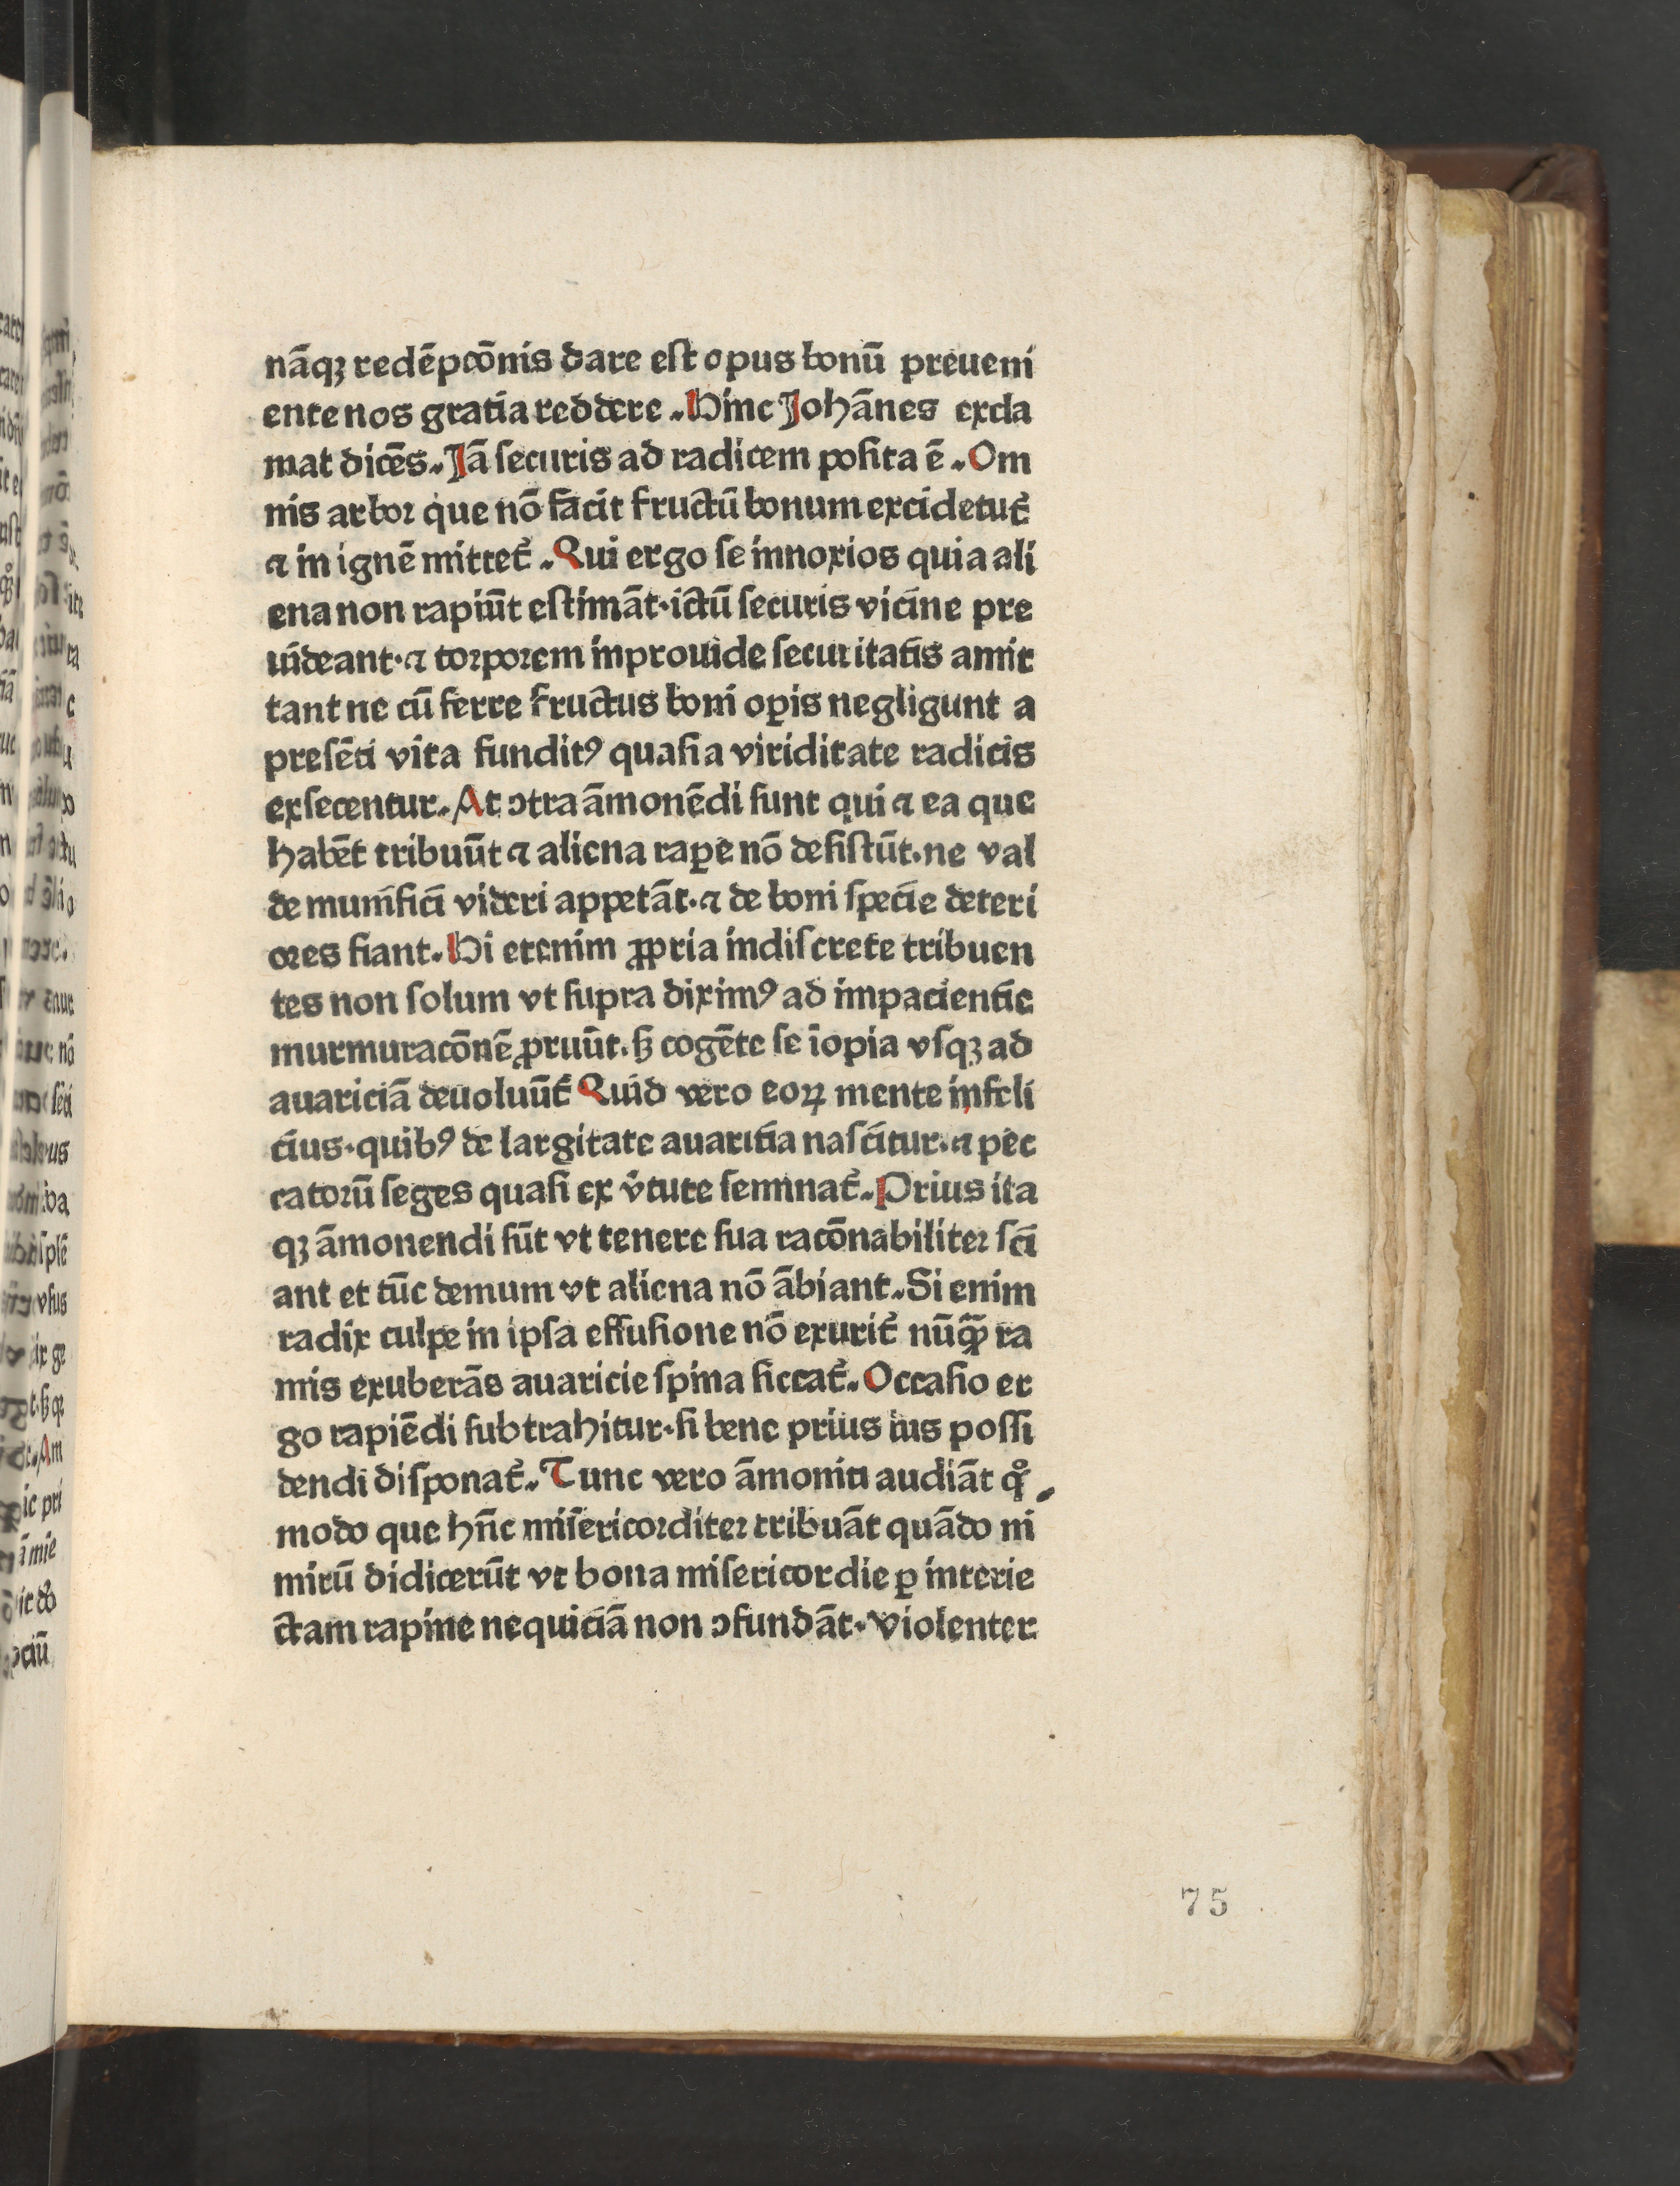 nāqꝫ redēpcōnis dare eſt opus bonū preueni
ente nos gratia reddere. Hinc Johānes excla
mat dicēs. Jā ſecuris ad radicem poſita ē. Om
nis arbor que nō facit fructū bonum excidetur̄
⁊ in ignē mittet᷑. Qui ergo ſe innoxios quia ali
ena non rapiūt eſtimāt· ictū ſecuris vicine pre
uideant· ⁊ torporem inprouide ſecuritatis amit
tant ne cū ferre fructus boni oꝑis negligunt a
preſēti vita funditꝰ quaſi a viriditate radicis
exſecentur. At ↄtra āmonēdi ſunt qui ⁊ ea que
habēt tribuūt ⁊ aliena raꝑe nō deſiſtūt. ne val
de munifici videri appetāt. ⁊ de boni ſpecie deteri
ores fiant. Hi etenim ꝓpria indiſcrete tribuen
tes non ſolum vt ſupra diximꝰ ad impacientie
murmuracōnē ꝓruūt. ſꝫ cogēte ſe īopia vſqꝫ ad
auariciā deuoluūt᷑ Quid vero eoꝝ mente infeli
cius· quibꝰ de largitate auaritia naſcitur. ⁊ pec
catorū ſeges quaſi ex v̓tute ſeminat᷑. Prius ita
qꝫ āmonendi ſūt vt tenere ſua racōnabiliter ſci
ant et tūc demum vt aliena nō ābiant. Si enim
radix culpe in ipſa effuſione nō exurit᷑ nūꝗ̄ ra
mis exuberās auaricie ſpina ſiccat᷑. Occaſio er
go rapiēdi ſubtrahitur· ſi bene prius ius poſſi
dendi diſponat᷑. Tunc vero āmoniti audiāt qͦ
modo que hn̄t miſericorditer tribuāt quādo ni
mirū didicerūt vt bona miſericordie ꝑ interie
ctam rapine nequiciā non ↄfundāt. Violenter
75